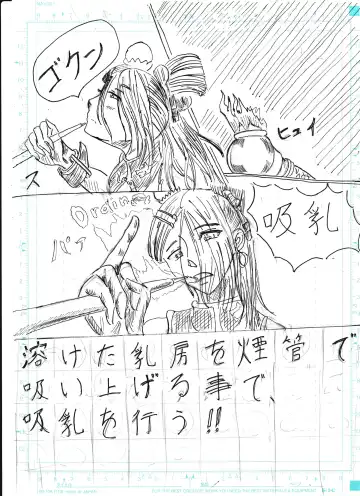 ゴクン
ヒュイ
ス
吸乳
パァ
溶けた乳房を煙管で
吸い上げる事で、
吸乳を行う!!